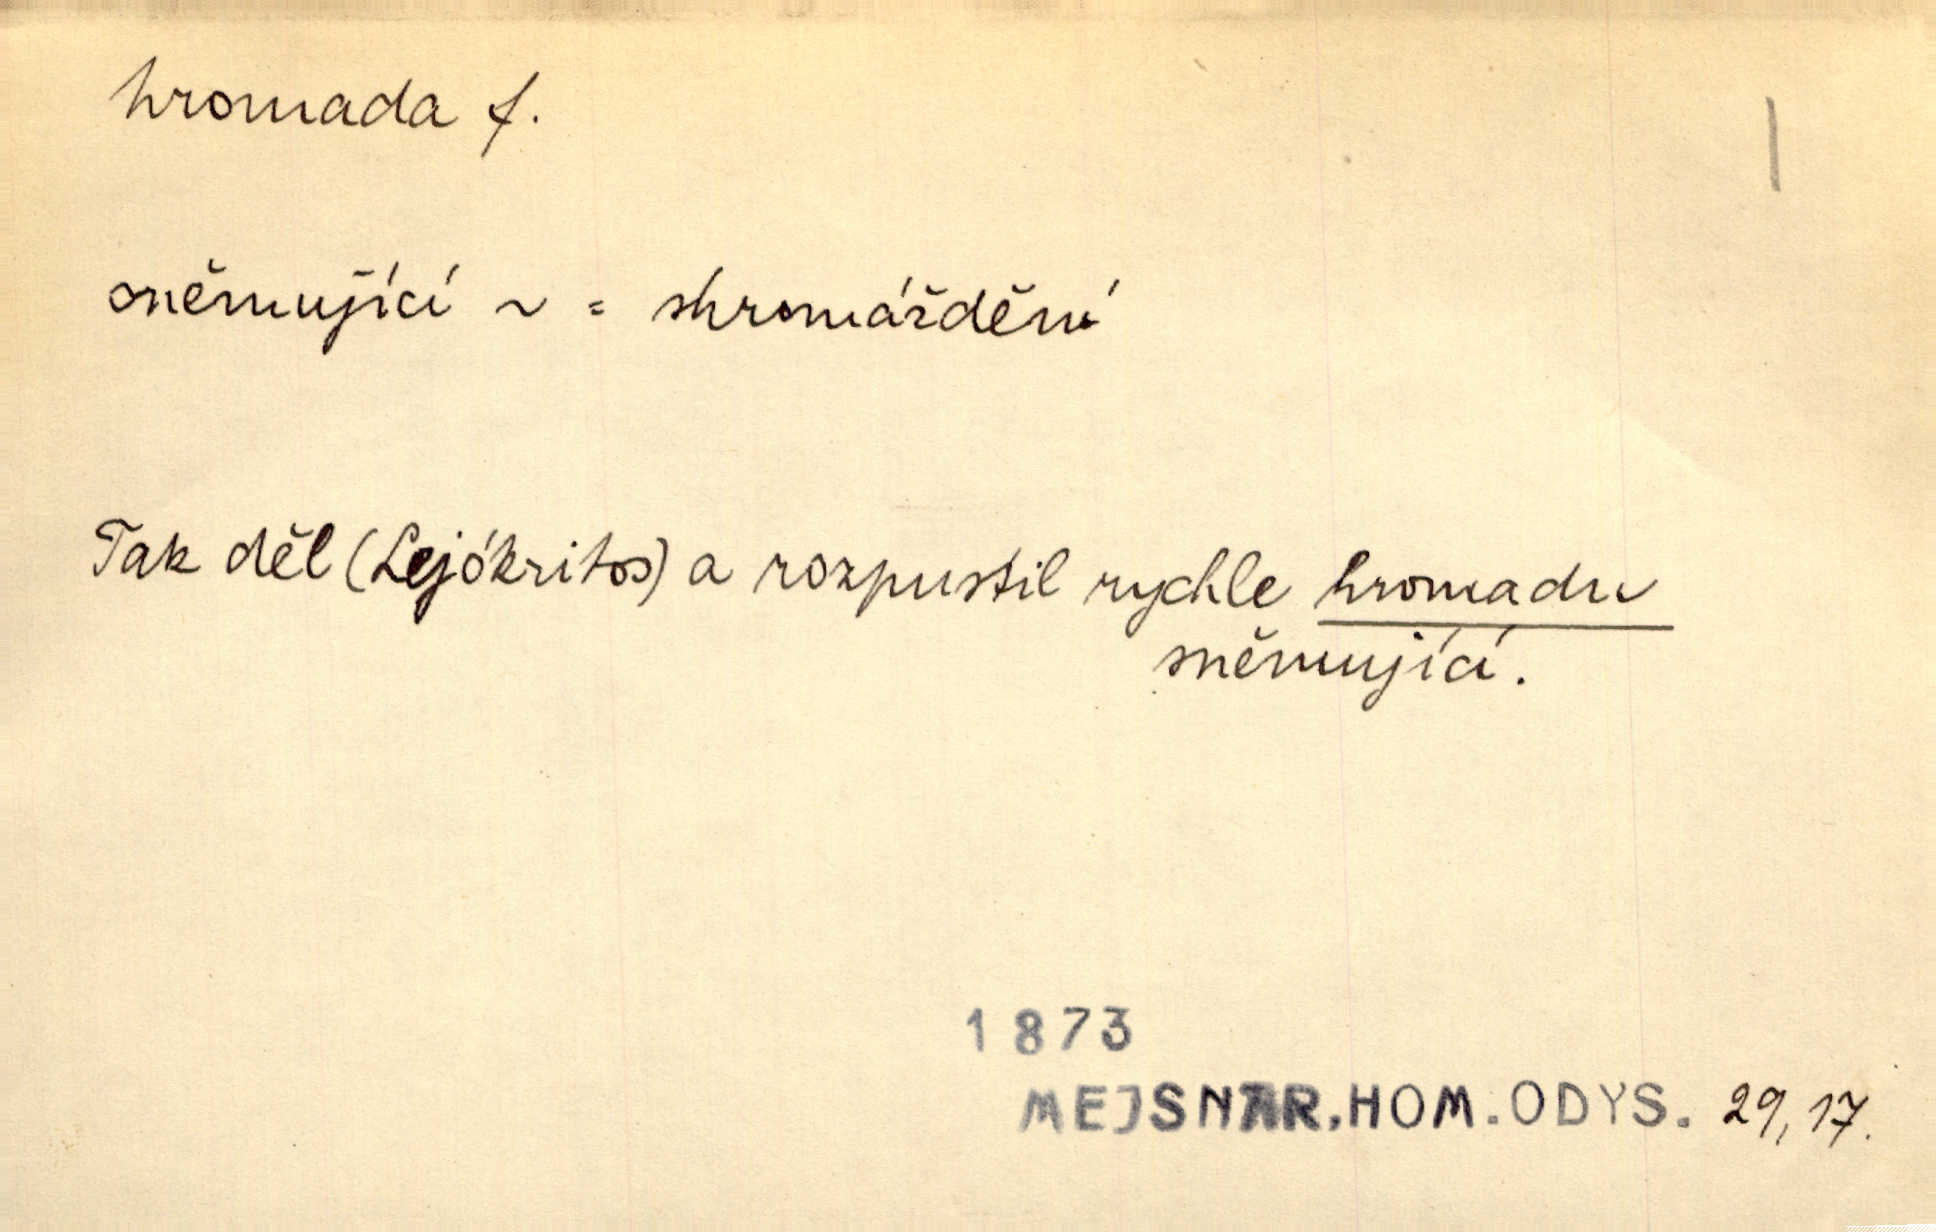 hromada f.
sněmující ~ = shromáždění
Tak děl (Lejókritos) a rozpustil rychle hromadu
sněmující.
1873
MEJSNAR, HOM. ODYS. 29, 17.